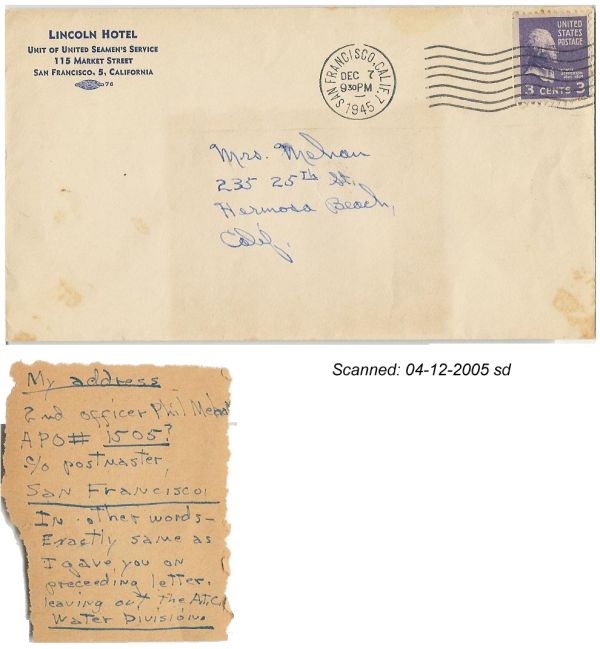 LINCOLN HOTEL
UNIT OF UNITED SEAMEN'S SERVICE
115 MARKET STREET
SAN FRANCISCO, 5, CALIFORNIA
76
SAN FRANCISCO, CALIF. 7
DEC 7
930 PM
1945
UNITED
STATES
POSTAGE
3 CENTS 3
Mrs. Mehan
235 25th St.
Hermosa Beach,
Calif.
Scanned: 04-12-2005 sd
My address
2nd officer Phil
APO# 1505?
c/o postmaster,
San Francisco!
In other words—
Exactly same as
I gave you on
preceeding letter,
leaving out the A.T.C.
Water Division.